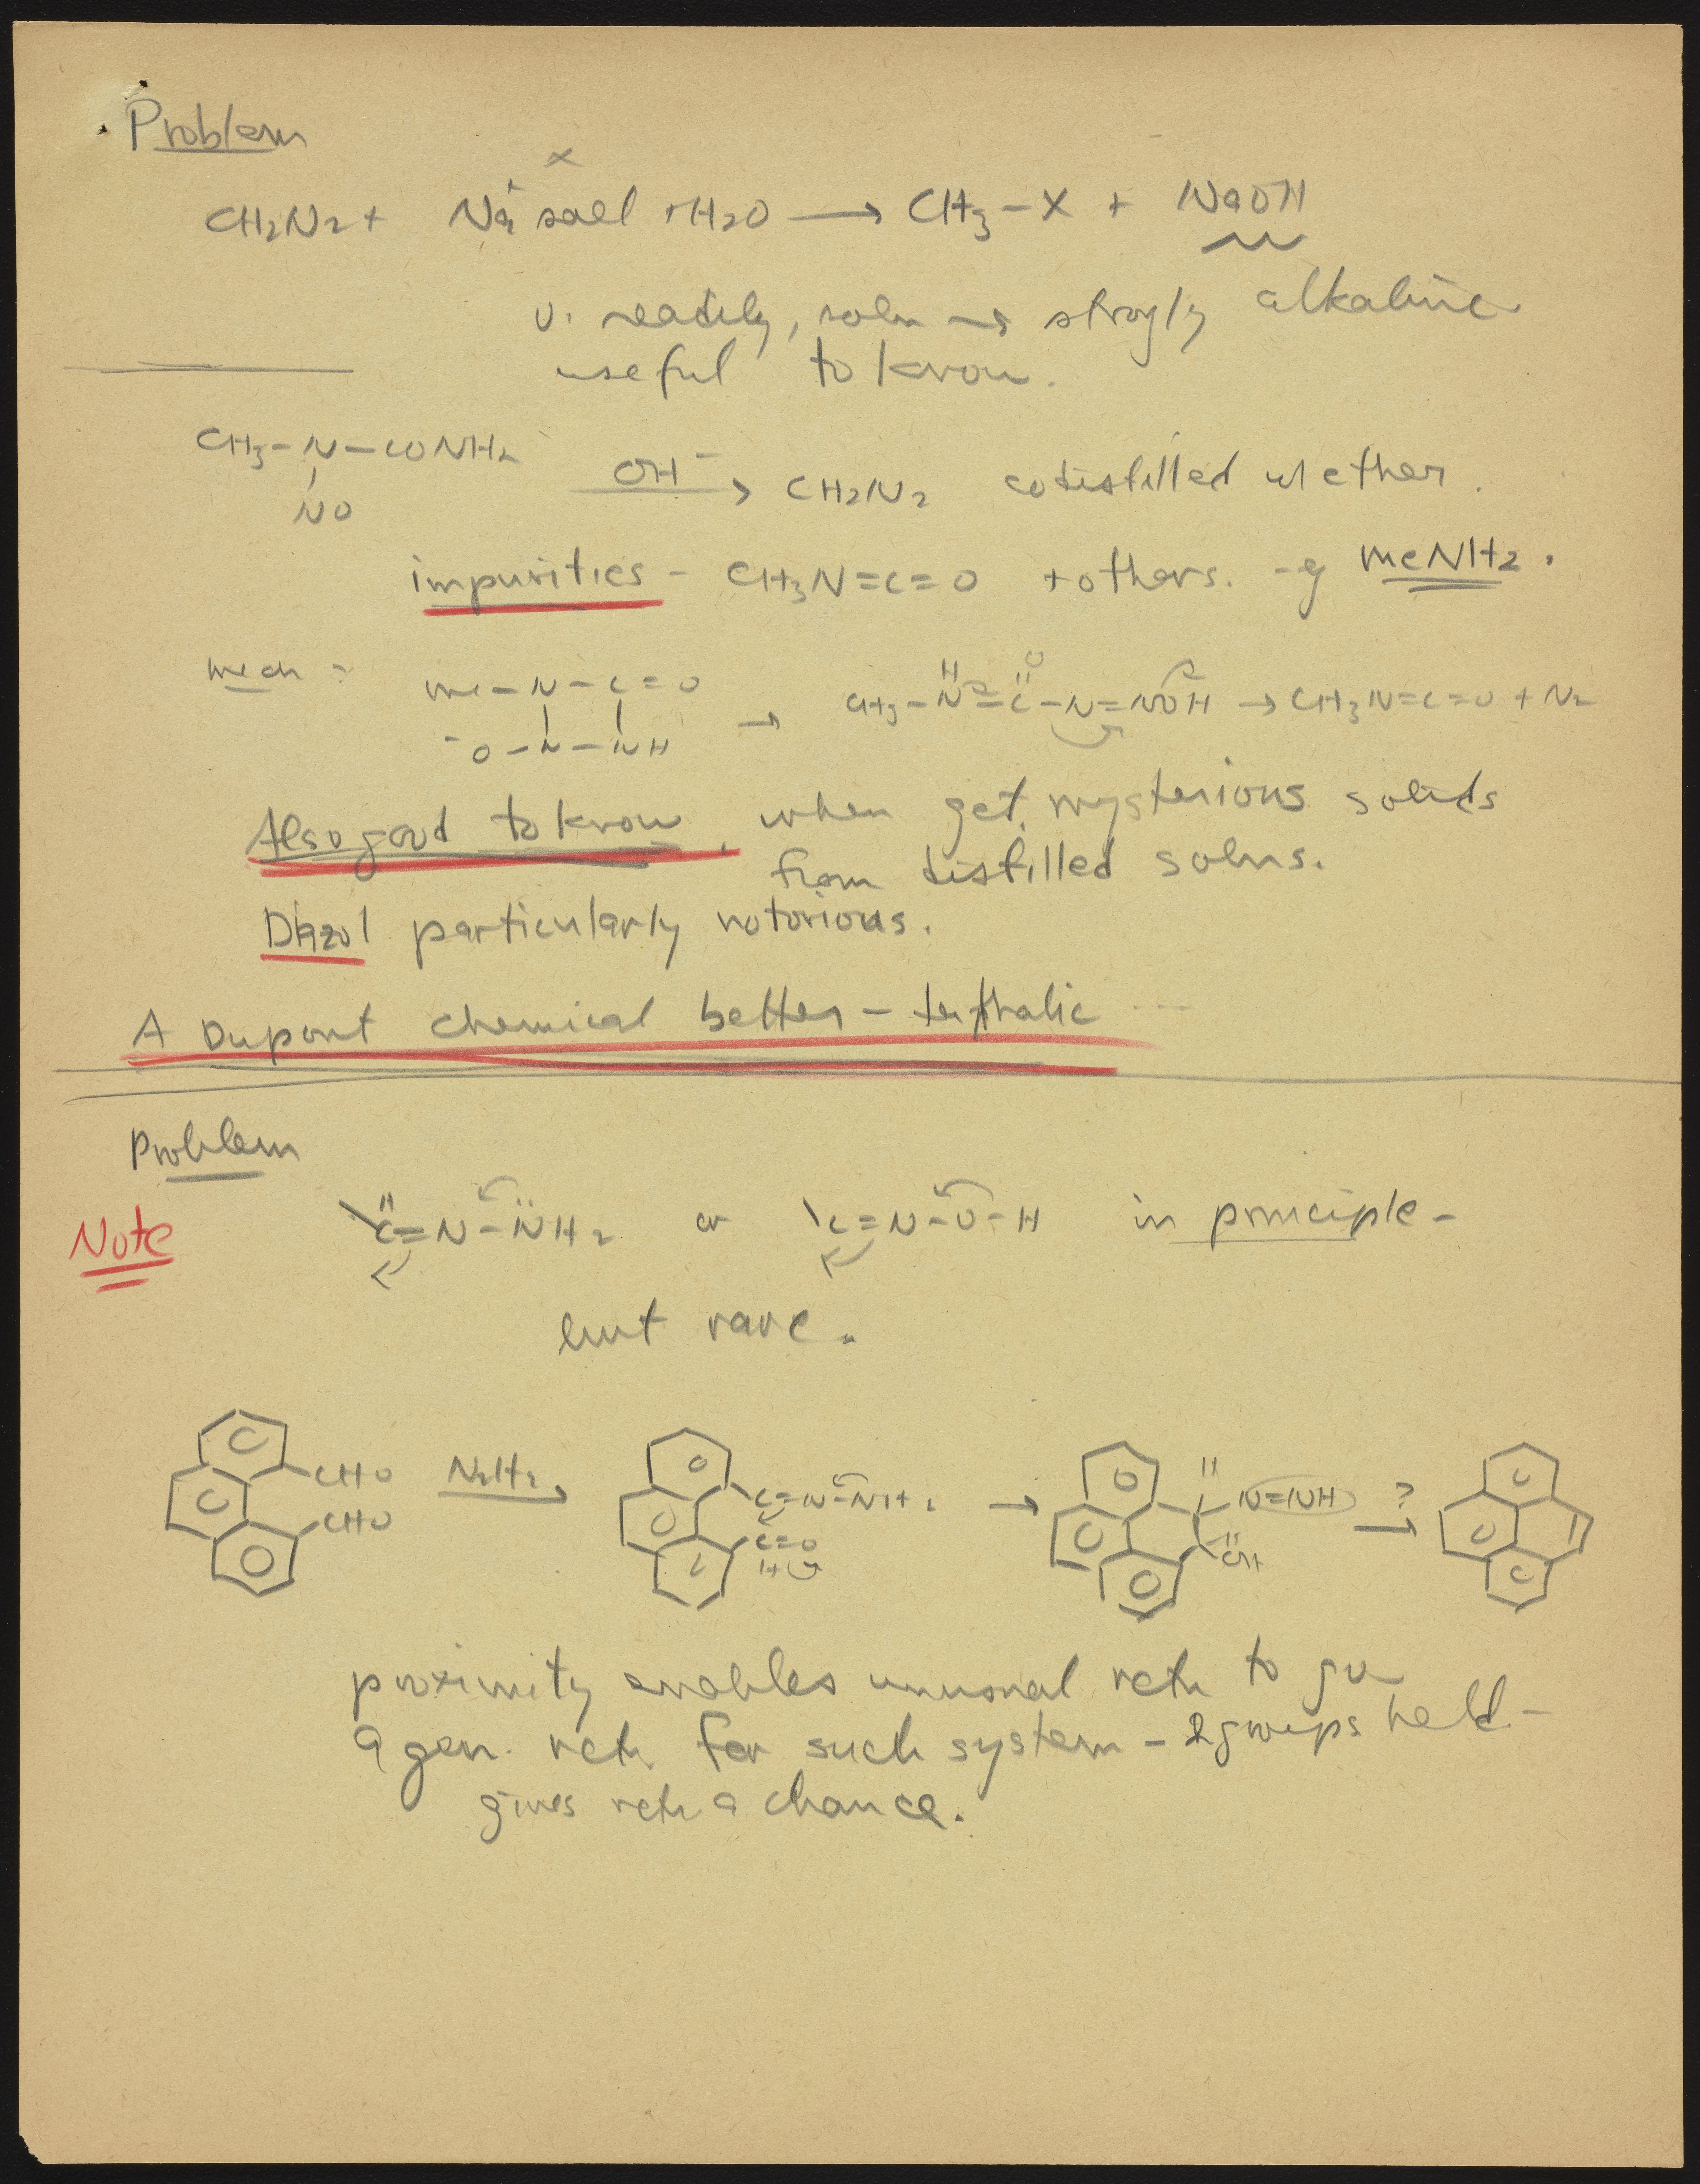 Problem
x
CH2N2 + Na+ salt + H2O → CH3-X + NaOH
v. readily, soln → strogly alkaline
useful to know.
CH3-N-CONH2
NO
OH- → CH2N2 codistilled w ether.
impurities - CH3N=C=O + others. -eg MeNH2.
mech:
Me-N-C=O
-O-N-NH
→ CH3-N-C-N=NOH → CH3N=C=O + N2
H O
Also good to know, when get mysterious solids
from distilled solns.
Diazol particularly notorious.
A Dupont chemical better - terthalic ...
Problem
Note
C=N-NH2 or C=N-O-H in principle -
but rare.
CHO
CHO
N2H2 →
C=N-NH2
C=O
H
→
N=NH
OH
? →
proximity enables unusual rctn to go
a gen. rctn for such system - 2 groups held -
gives rctn a chance.